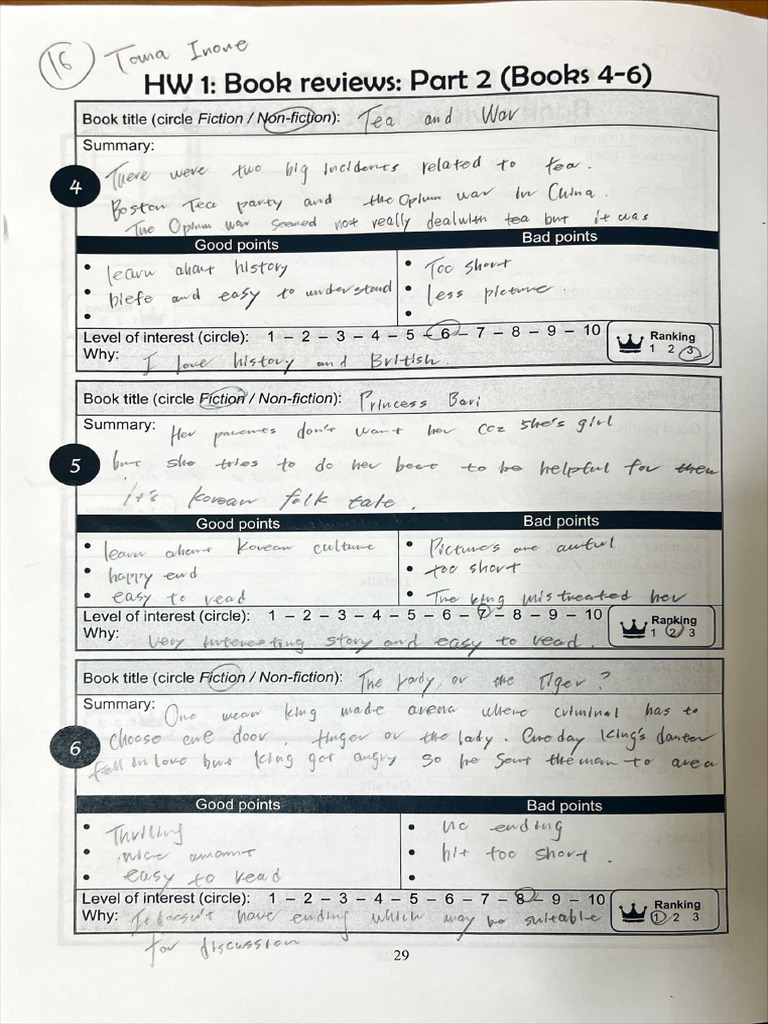 16 Toma Inoue
HW 1: Book reviews: Part 2 (Books 4-6)
Book title (circle Fiction / Non-fiction): Tea and War
4
Summary:
There were two big incidents related to tea.
Boston Tea party and the Opium war in China.
The Opium war seemed not really dealwith tea but it was
Good points
Bad points
• learn about history
• biefe and easy to understand
•
• Too short
• Less picture
•
Level of interest (circle): 1 – 2 – 3 – 4 – 5 – 6 – 7 – 8 – 9 – 10
Why: I love history and British.
Ranking
1 2 3
Book title (circle Fiction / Non-fiction): Princess Bari
5
Summary: Her parents don't want her coz she's girl
but she tries to do her best to be helpful for them
it's Korean folk tale.
Good points
Bad points
• learn about Korean culture
• happy end
• easy to read
• Pictures are awful
• too short
• The king mistreated her
Level of interest (circle): 1 – 2 – 3 – 4 – 5 – 6 – 7 – 8 – 9 – 10
Why: Very interesting story and easy to read.
Ranking
1 2 3
Book title (circle Fiction / Non-fiction): The Lady, or the Tiger?
6
Summary: One king made arena where criminal has to
choose one door. or the lady. One day King's
fell in love but King got angry so he sent the man to area
Good points
Bad points
• Thrilling
• nice amount
• easy to read
• no ending
• bit too short.
•
Level of interest (circle): 1 – 2 – 3 – 4 – 5 – 6 – 7 – 8 – 9 – 10
Why: It doesn't have ending which may be suitable
for discussion
Ranking
1 2 3
29